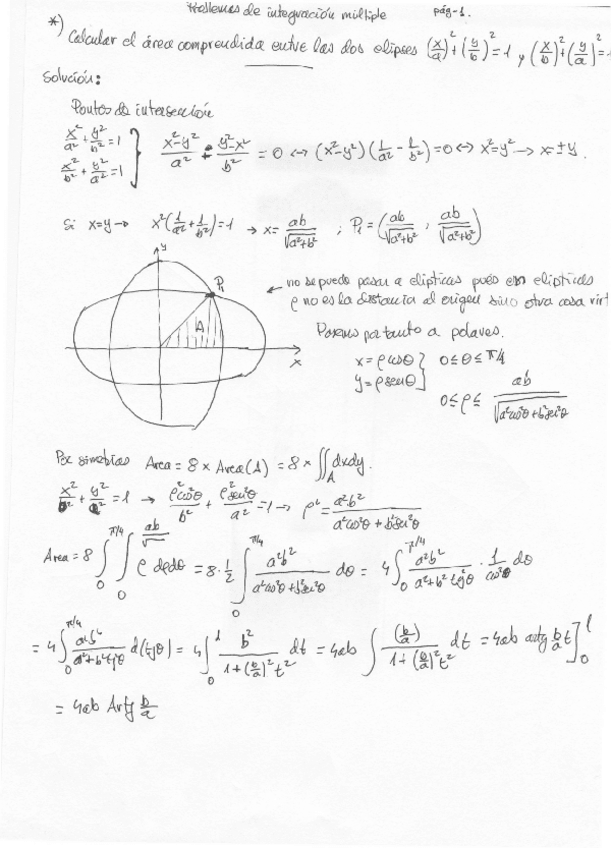 Problemas de integración múltiple pág-1.
*) Calcular el área comprendida entre las dos elipses (x/a)²+(y/b)²=1 y (x/b)²+(y/a)²=1
Solución:
Puntos de intersección
x²/a²+y²/b²=1
x²/b²+y²/a²=1 } (x²-y²)/a² + (y²-x²)/b² = 0 ↔ (x²-y²)(1/a² - 1/b²)=0 ↔ x²=y² → x=±y.
Si x=y → x²(1/a²+1/b²)=1 → x= ab/√(a²+b²) ; P₁=(ab/√(a²+b²), ab/√(a²+b²))
y
P₁
A
x
← no se puede pasar a elípticas pues en elípticas
ρ no es la distancia al origen sino otra cosa
Pasamos por tanto a polares.
x=ρcosθ } 0≤θ≤π/4
y=ρsenθ
0≤ρ≤ ab/√(a²cos²θ+b²sen²θ)
Por simetrías Area = 8 × Area(A) = 8 × ∬_A dxdy.
x²/b² + y²/a² = 1 → ρ²cos²θ/b² + ρ²sen²θ/a² = 1 → ρ² = a²b²/(a²cos²θ + b²sen²θ)
Area = 8 ∫₀^π/4 ∫₀^ab/√ ρ dρdθ = 8·1/2 ∫₀^π/4 a²b²/(a²cos²θ+b²sen²θ) dθ = 4 ∫₀^π/4 a²b²/(a²+b²tg²θ) · 1/cos²θ dθ
= 4 ∫₀^π/4 a²b²/(a²+b²tg²θ) d(tgθ) = 4 ∫₀^1 b²/(1+(b/a)²t²) dt = 4ab ∫ (b/a)/(1+(b/a)²t²) dt = 4ab artg b/a t]₀^1
= 4ab Artg b/a